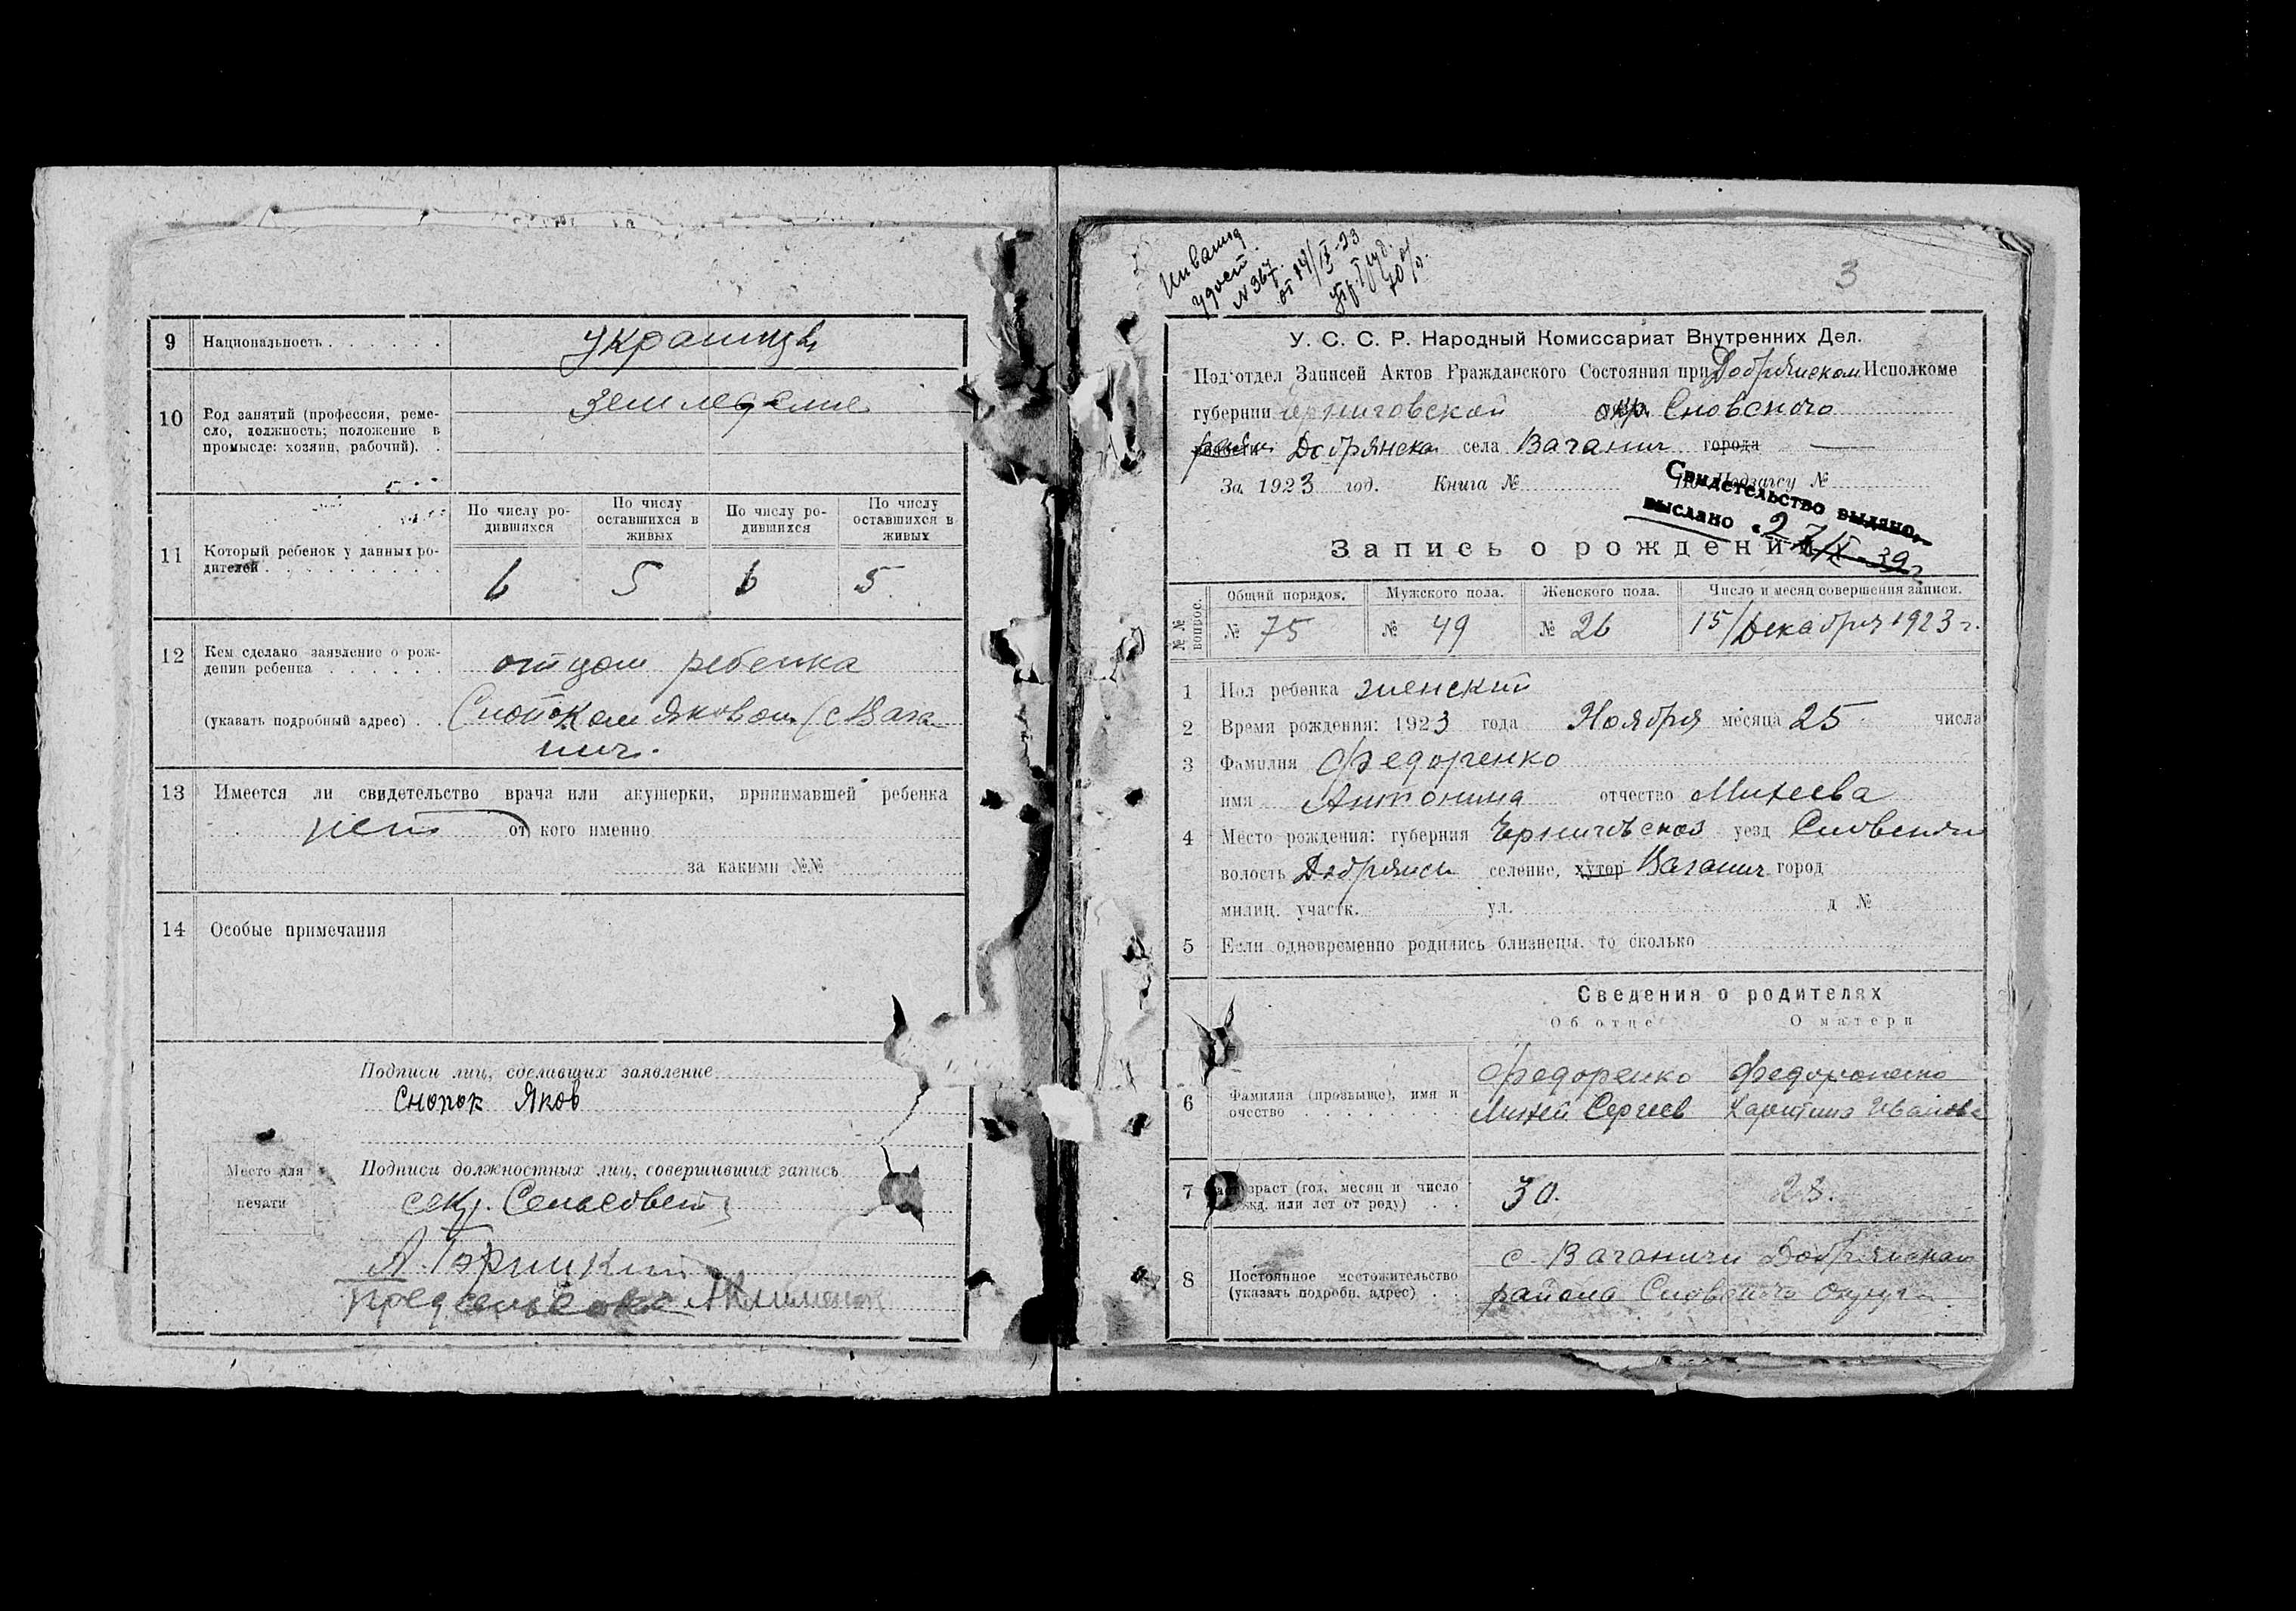 9 Национальность украинцы
10 Род занятий (профессия, реме-
сло, должность; положение в
промысле: хозяин, рабочий).
земледелие
По числу ро-
дившихся
По числу
оставшихся в
живых
По числу ро-
дившихся
По числу
оставшихся в
живых
11 Который ребенок у данных ро-
дителей
6 5 6 5
12 Кем сделано заявление о рож-
дении ребенка отцом ребенка
(указать подробный адрес) Снопком Яковом (с Вага
нич.
13 Имеется ли свидетельство врача или акушерки, принимавшей ребенка
нет от кого именно
за какими №№
14 Особые примечания
Подписи лиц, сделавших заявление
Снопок Яков
Место для
печати
Подписи должностных лиц, совершивших запись
секр. Сельсовета
предсельсовета А Клименок
удост.
№ 367.
3
У. С. С. Р. Народный Комиссариат Внутренних Дел.
Подотдел Записей Актов Гражданского Состояния при Добрянском Исполкоме
губернии Черниговской окр. Сновского
Добрянска села Ваганич города
За 1923 год. Книга № по Подзагсу №
Свидетельство выдано,
выслано 27/IX-39г
Запись о рождении
№№ вопрос.
Общий порядок. Мужского пола. Женского пола. Число и месяц совершения записи.
№ 75 № 49 № 26 15/Декабря 1923 г.
1 Пол ребенка женский
2 Время рождения: 1923 года Ноября месяца 25 числа
3 Фамилия Федоренко
имя Антонина отчество Михеева
4 Место рождения: губерния Черниговская уезд Сновский
волость Добрянск селение, хутор Ваганич город
милиц. участк. ул. д №
5 Если одновременно родились близнецы, то сколько
Сведения о родителях
Об отце О матери
6 Фамилия (прозвыще), имя и
очество
Федоренко
Михей Сергеев
Федоренко
Харитина Иванова
7 Возраст (год, месяц и число
рожд. или лет от роду)
30. 28.
8 Постоянное местожительство
(указать подробн. адрес)
с. Ваганичи Добрянскаго
района Сновского округа